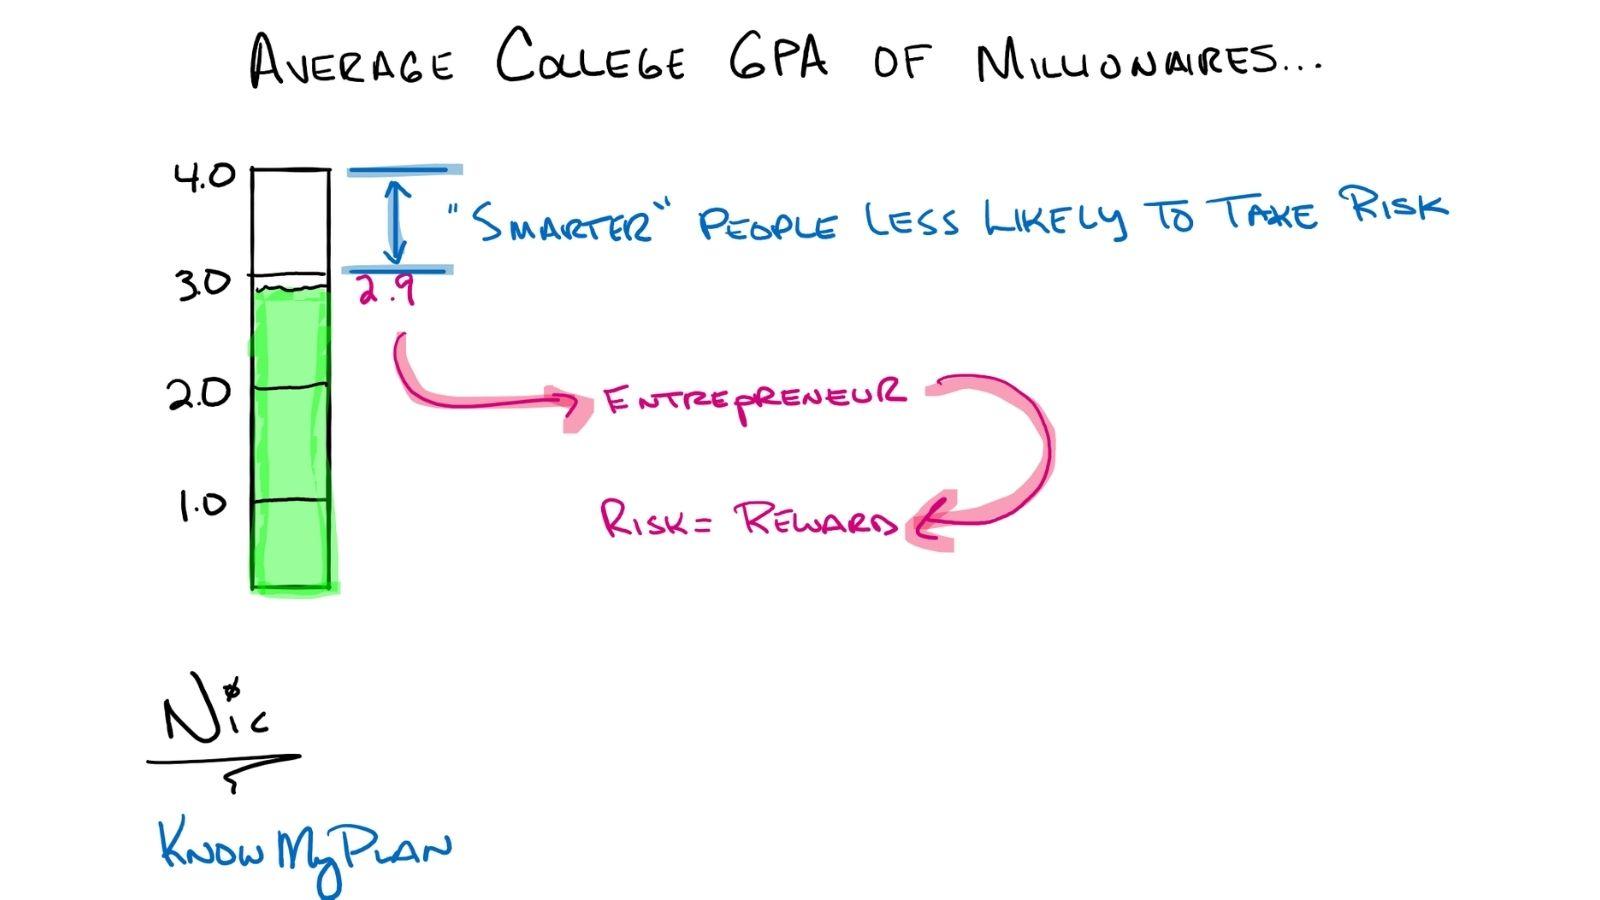 AVERAGE COLLEGE GPA OF MILLIONAIRES...
4.0
"SMARTER" PEOPLE LESS LIKELY TO TAKE RISK
3.0
2.9
2.0
ENTREPRENEUR
1.0
RISK = REWARD
Nic
KNOWMYPLAN